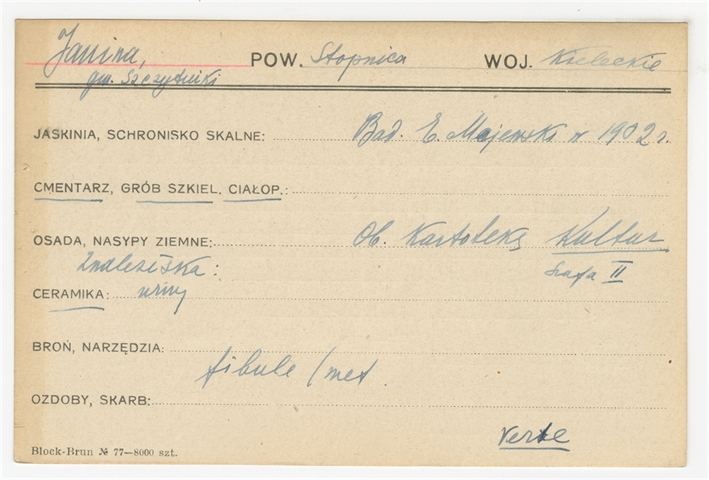 Janina, POW. Stopnica WOJ. Kieleckie
gm. Szczytniki
JASKINIA, SCHRONISKO SKALNE: Bad. E. Majewski w 1902 r.
CMENTARZ, GRÓB SZKIEL. CIAŁOP.:
OSADA, NASYPY ZIEMNE: Ob. Kartoteką Kultur
Znaleziska: Szafa II
CERAMIKA: urny
BROŃ, NARZĘDZIA:
fibule (met.
OZDOBY, SKARB:
verte
Block-Brun № 77—8000 szt.